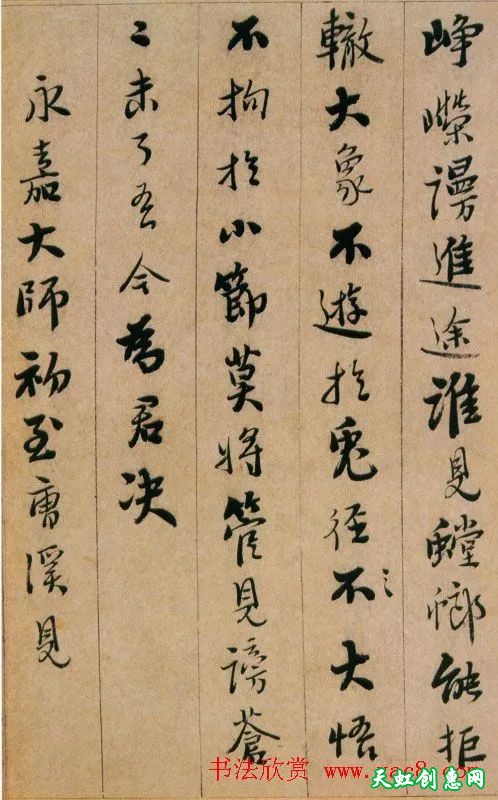 崢嶸謾進途誰見螳螂能拒
轍大象不遊於兔徑不大悟
不拘於小節莫將管見謗蒼
〻未了吾今為君决
永嘉大師初至曹溪見
书法欣赏
天虹创惠网